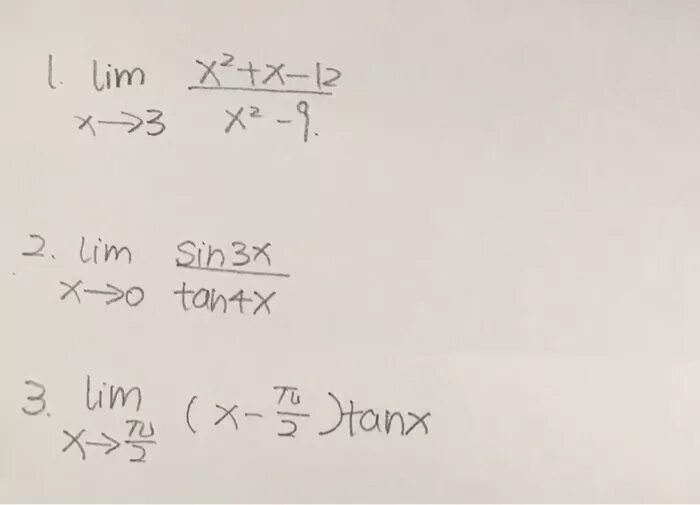 1. lim x→3 (x²+x-12)/(x²-9.)
2. lim x→0 sin3x/tan4x
3. lim x→π/2 (x-π/2)tanx